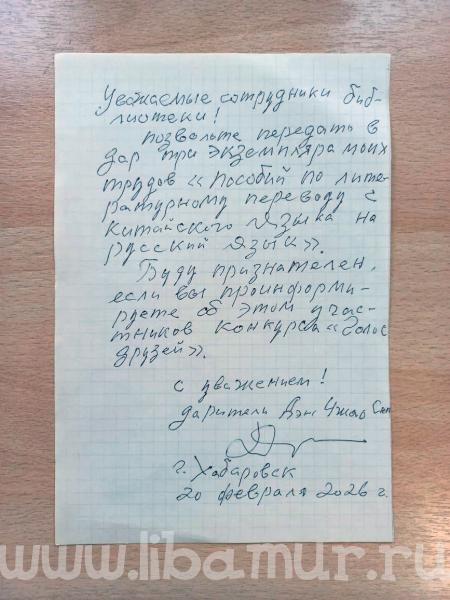 Уважаемые сотрудники биб-
лиотеки!
позвольте передать в
дар три экземпляра моих
трудов «Пособий по лите-
ратурному переводу с
китайского языка на
русский язык».
Буду признателен,
если вы проинформи-
руете об этом участ-
тников конкурса «Голос
друзей».
с уважением!
дарители Дэн Чжао
г. Хабаровск
20 февраля 2026 г.
www.libamur.ru